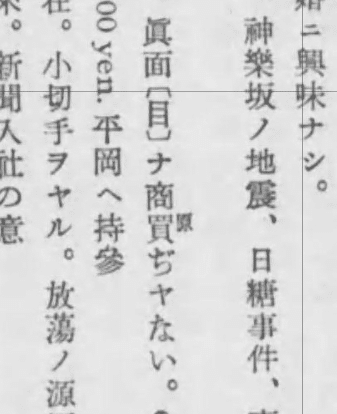 婚ニ興味ナシ。
神樂坂ノ地震、日糖事件、
眞面〔目〕ナ商買原ぢヤない。
00 yen. 平岡へ持參
在。小切手ヲヤル。放蕩ノ源
来。新聞入社の意